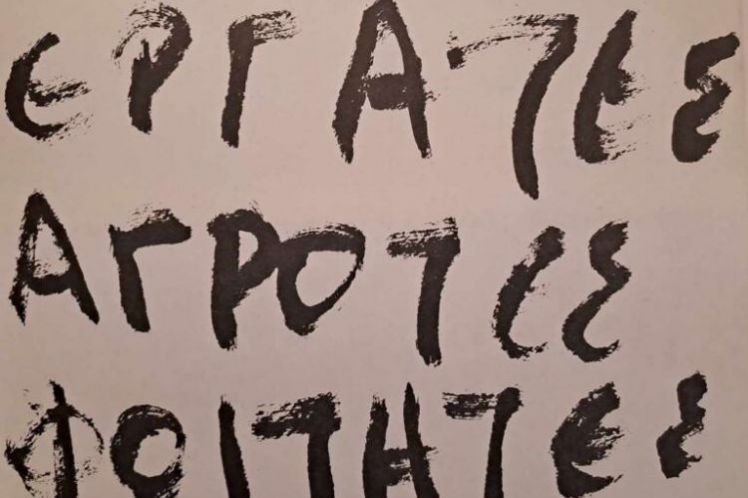 ΕΡΓΑΤΕΣ
ΑΓΡΟΤΕΣ
ΦΟΙΤΗΤΕΣ